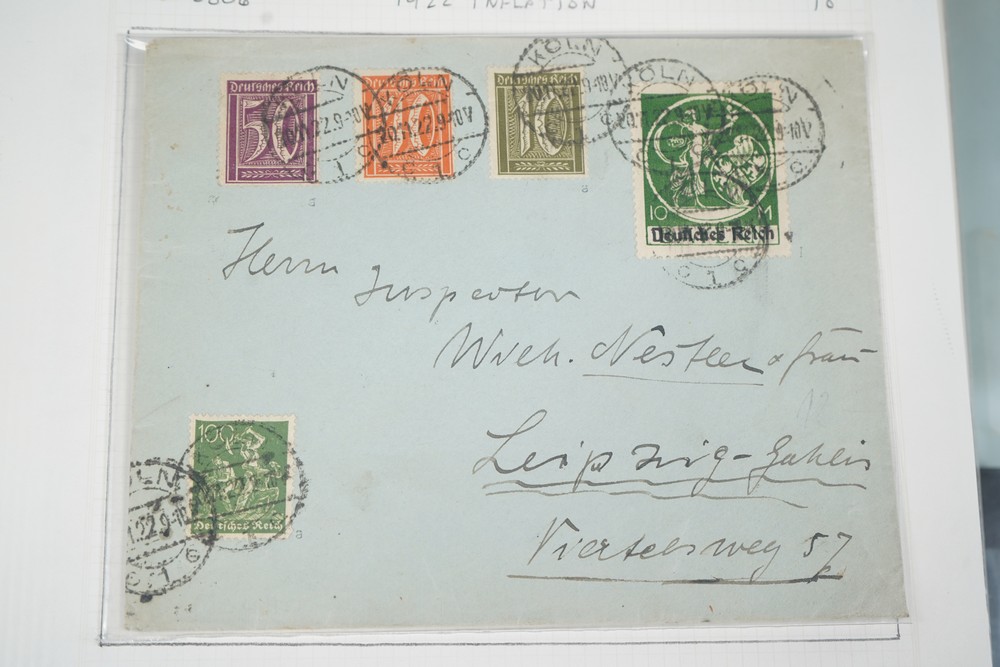 1922 INFLATION
Deutsches Reich
50
Deutsches Reich
10
Deutsches Reich
10
10 M
Deutsches Reich
KÖLN
20.11.22.9-10V
C 1 C
Herrn
Inspector
Wilh. Nestler & Frau
Leipzig-Gohlis
Viertelsweg 57
100
Deutsches Reich
KÖLN
22.9-10V